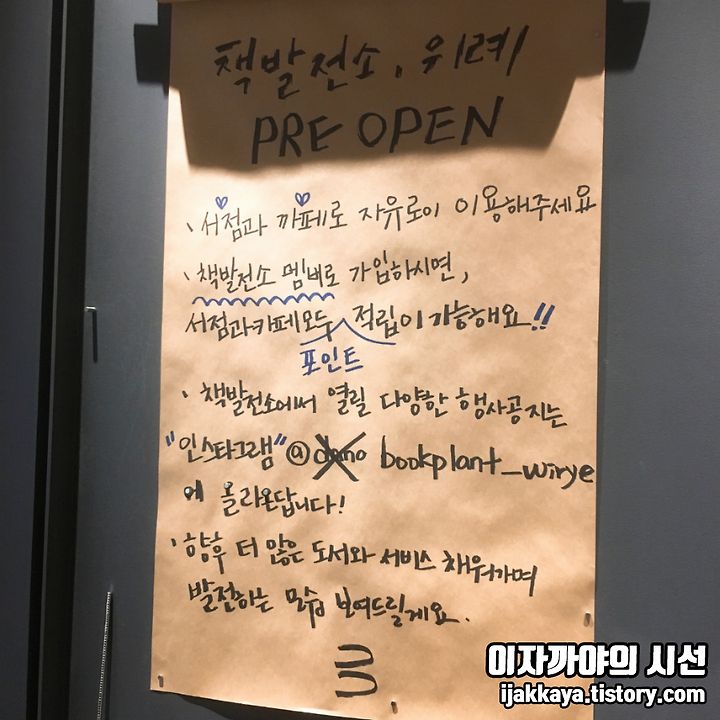 책발전소, 위례
PRE OPEN
、서점과 까페로 자유로이 이용해주세요
、책발전소 멤버로 가입하시면,
서점과카페모두 적립이 가능해요!!
포인트
、책발전소에서 열릴 다양한 행사공지는
"인스타그램" @ bookplant_wirye
에 올라온답니다!
· 향후 더 많은 도서와 서비스 채워가며
발전하는 모습 보여드릴게요.
이자까야의 시선
ijakkaya.tistory.com